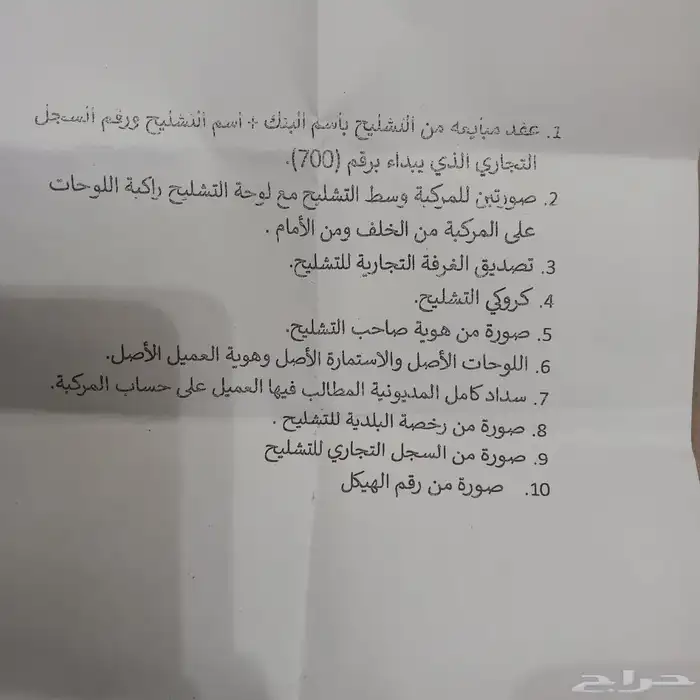 1. عقد مبايعه من التشليح بأسم البنك + اسم التشليح ورقم السجل
التجاري الذي يبداء برقم (700).
2. صورتين للمركبة وسط التشليح مع لوحة التشليح راكبة اللوحات
على المركبة من الخلف ومن الأمام .
3. تصديق الغرفة التجارية للتشليح.
4. كروكي التشليح.
5. صورة من هوية صاحب التشليح.
6. اللوحات الأصل والاستمارة الأصل وهوية العميل الأصل.
7. سداد كامل المديونية المطالب فيها العميل على حساب المركبة.
8. صورة من رخصة البلدية للتشليح .
9. صورة من السجل التجاري للتشليح
10. صورة من رقم الهيكل
حراج